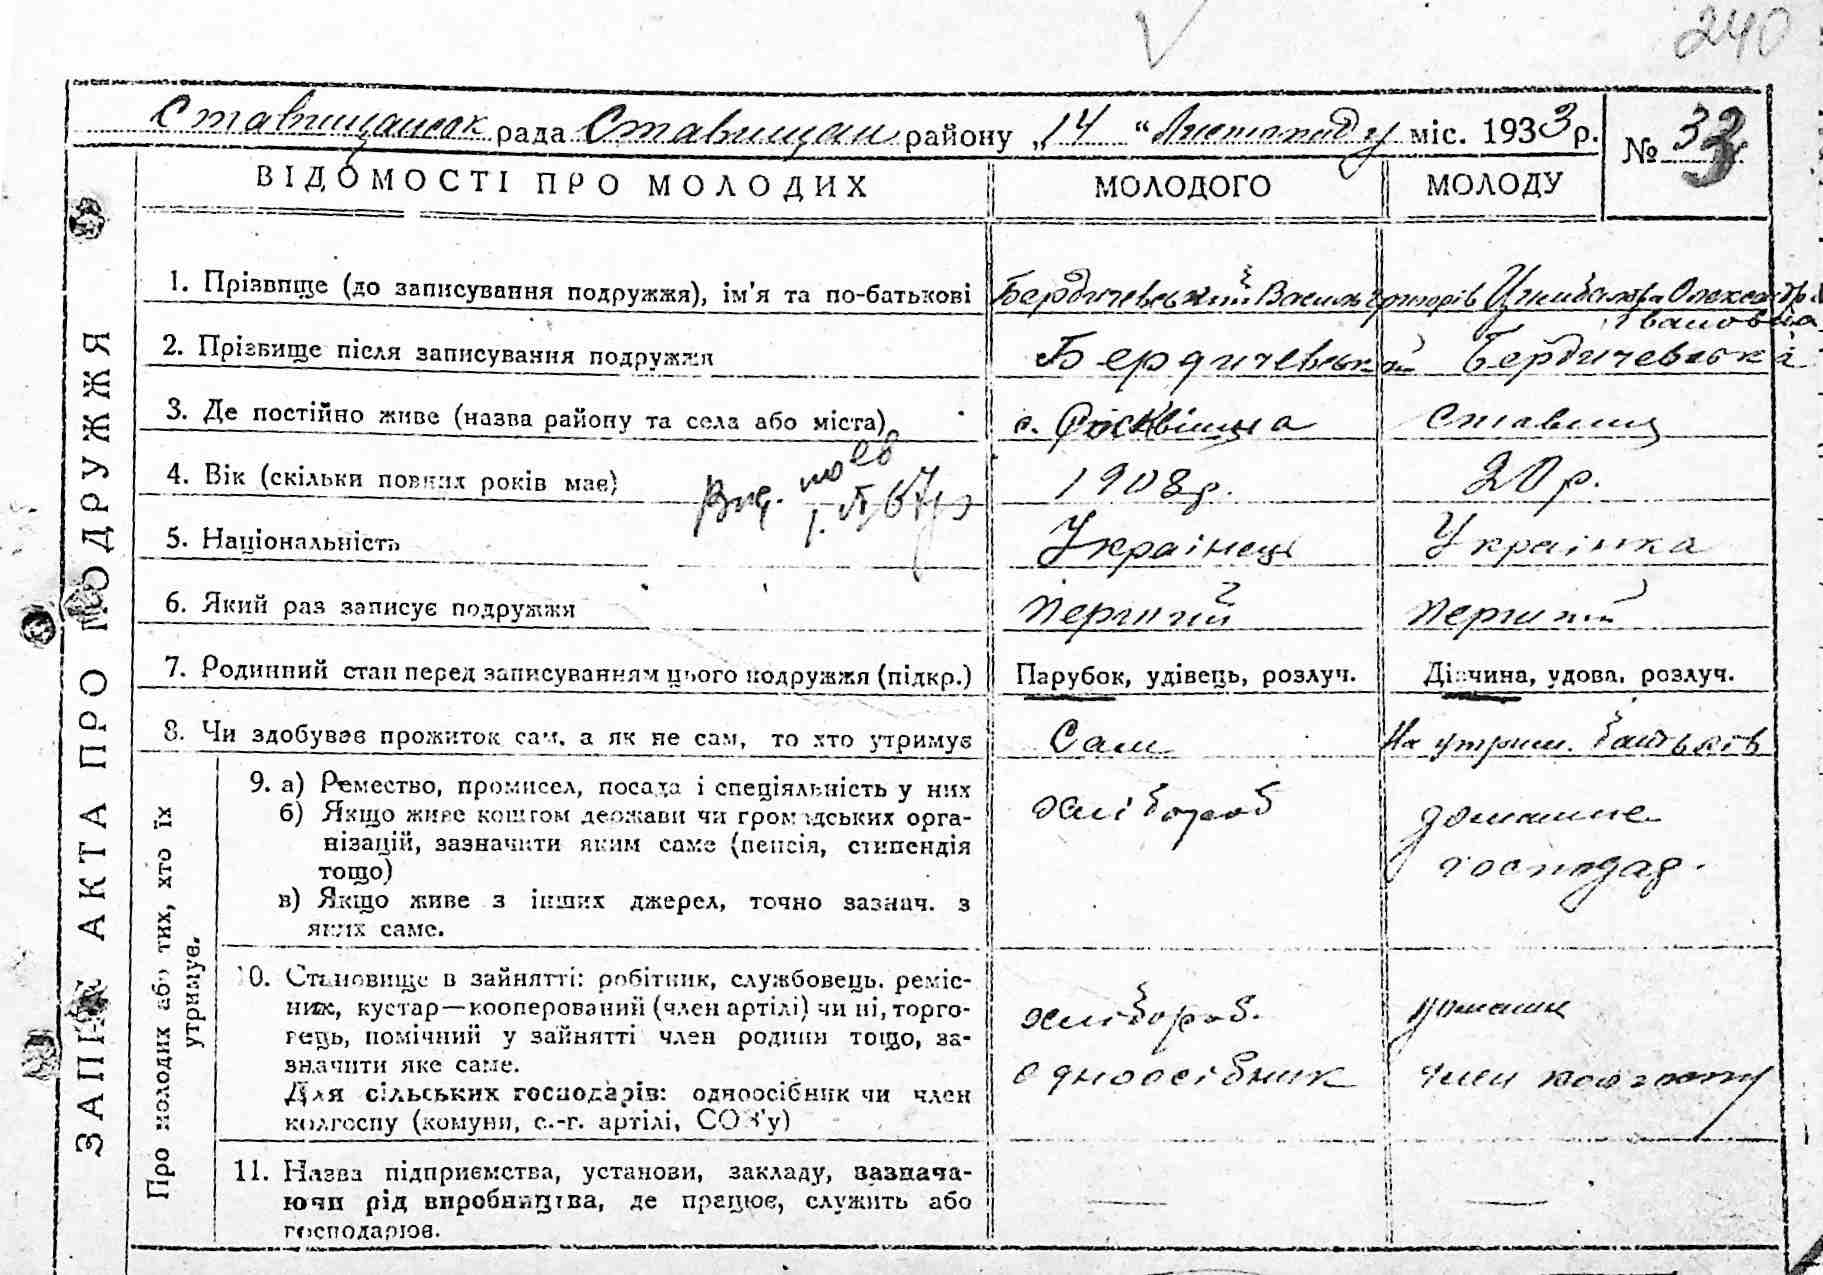 240
Ставищанськ рада Ставищан району „14“ Листопаду міс. 1933 р. № 33
ЗАПИС АКТА ПРО ПОДРУЖЖЯ
ВІДОМОСТІ ПРО МОЛОДИХ МОЛОДОГО МОЛОДУ
1. Прізвище (до записування подружжя), ім'я та по-батькові Бердичевський Василь Григорів Цимбалюк Олександра Івановна
2. Прізвище після записування подружжя Бердичевський Бердичевська
3. Де постійно живе (назва району та села або міста) с. Ставищ
4. Вік (скільки повних років має) 1908 р. 20 р.
5. Національність Українець Українка
6. Який раз записує подружжя Перший Перший
7. Родинний стан перед записуванням цього подружжя (підкр.) Парубок, удівець, розлуч. Дівчина, удова, розлуч.
8. Чи здобував прожиток сам, а як не сам, то хто утримує Сам На утрим. батьків
Про молодих або тих, хто їх утримує.
9. а) Ремество, промисел, посада і спеціяльність у них хлібороб домашнє
б) Якщо живе коштом держави чи громадських орга- господар.
нізацій, зазначити яким саме (пенсія, стипендія
тощо)
в) Якщо живе з інших джерел, точно зазнач. з
яких саме.
10. Становище в зайнятті: робітник, службовець, реміс-
ник, кустар—кооперований (член артілі) чи ні, торго- хлібороб. домашн
вець, помічний у зайнятті член родини тощо, за-
значити яке саме. одноосібник член колгоспу
Для сільських господарів: одноосібник чи член
колгоспу (комуни, с.-г. артілі, СОЗ'у)
11. Назва підприємства, установи, закладу, зазнача-
ючи рід виробництва, де працює, служить або — —
господарює.